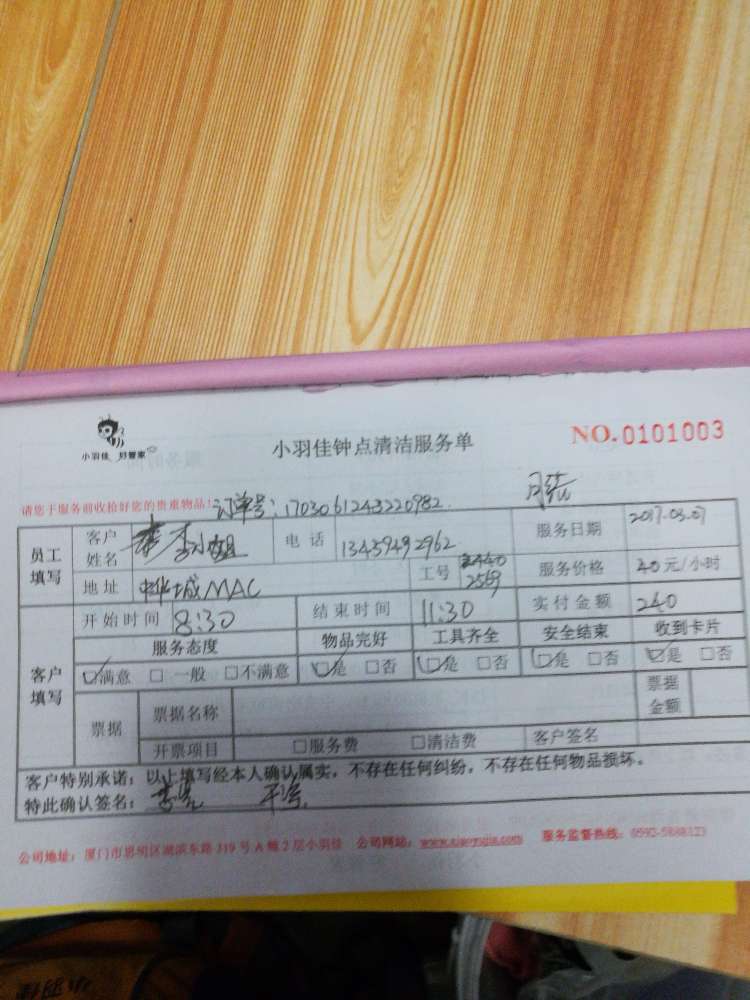 小羽佳 好管家
小羽佳钟点清洁服务单
NO.0101003
请您于服务前收拾好您的贵重物品!
订单号:1703061243220982
员工填写 客户姓名 李小姐 电话 13459492962 服务日期 2017.03.07
地址 中华城MAC 工号 2569 服务价格 40元/小时
开始时间 8:30 结束时间 11:30 实付金额 240
客户填写 服务态度 物品完好 工具齐全 安全结束 收到卡片
☑满意 □一般 □不满意 ☑是 □否 ☑是 □否 ☑是 □否 ☑是 □否
票据 票据名称 票据金额
开票项目 □服务费 □清洁费 客户签名
客户特别承诺:以上填写经本人确认属实,不存在任何纠纷,不存在任何物品损坏。
特此确认签名:
公司地址:厦门市思明区湖滨东路319号A幢2层小羽佳 公司网站:www.xiaoyujia.com 服务监督热线:0592-5888123